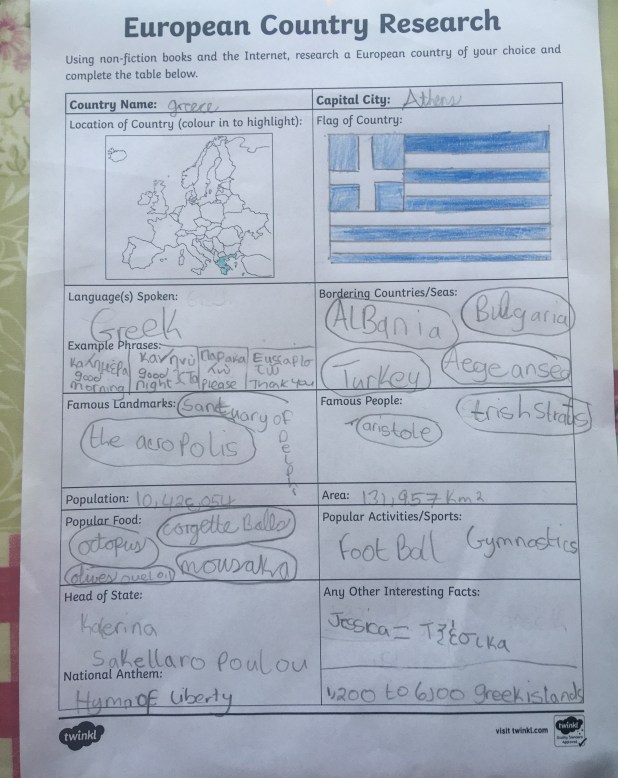 European Country Research
Using non-fiction books and the Internet, research a European country of your choice and
complete the table below.
Country Name: greece
Capital City: Athens
Location of Country (colour in to highlight):
Flag of Country:
Language(s) Spoken:
Greek
Example Phrases:
Καλημέρα
good
morning
good
night
Παρακα
λώ
please
Thank you
Bordering Countries/Seas:
ALBania
Bulgaria
Turkey
Aegeansea
Famous Landmarks: Sanctuary of
Delphi
the acropolis
Famous People:
aristole
Population: 10,426,054
Area: 131,957 km2
Popular Food:
corgette Balls
octopus
mousaka
Popular Activities/Sports:
Foot Ball
Gymnastics
Head of State:
Katerina
Sakellaro Poulou
National Anthem:
Hymn OF Liberty
Any Other Interesting Facts:
Jessica = Τζέσικα
greek islands
twinkl
visit twinkl.com
twinkl
Quality Standard
Approved